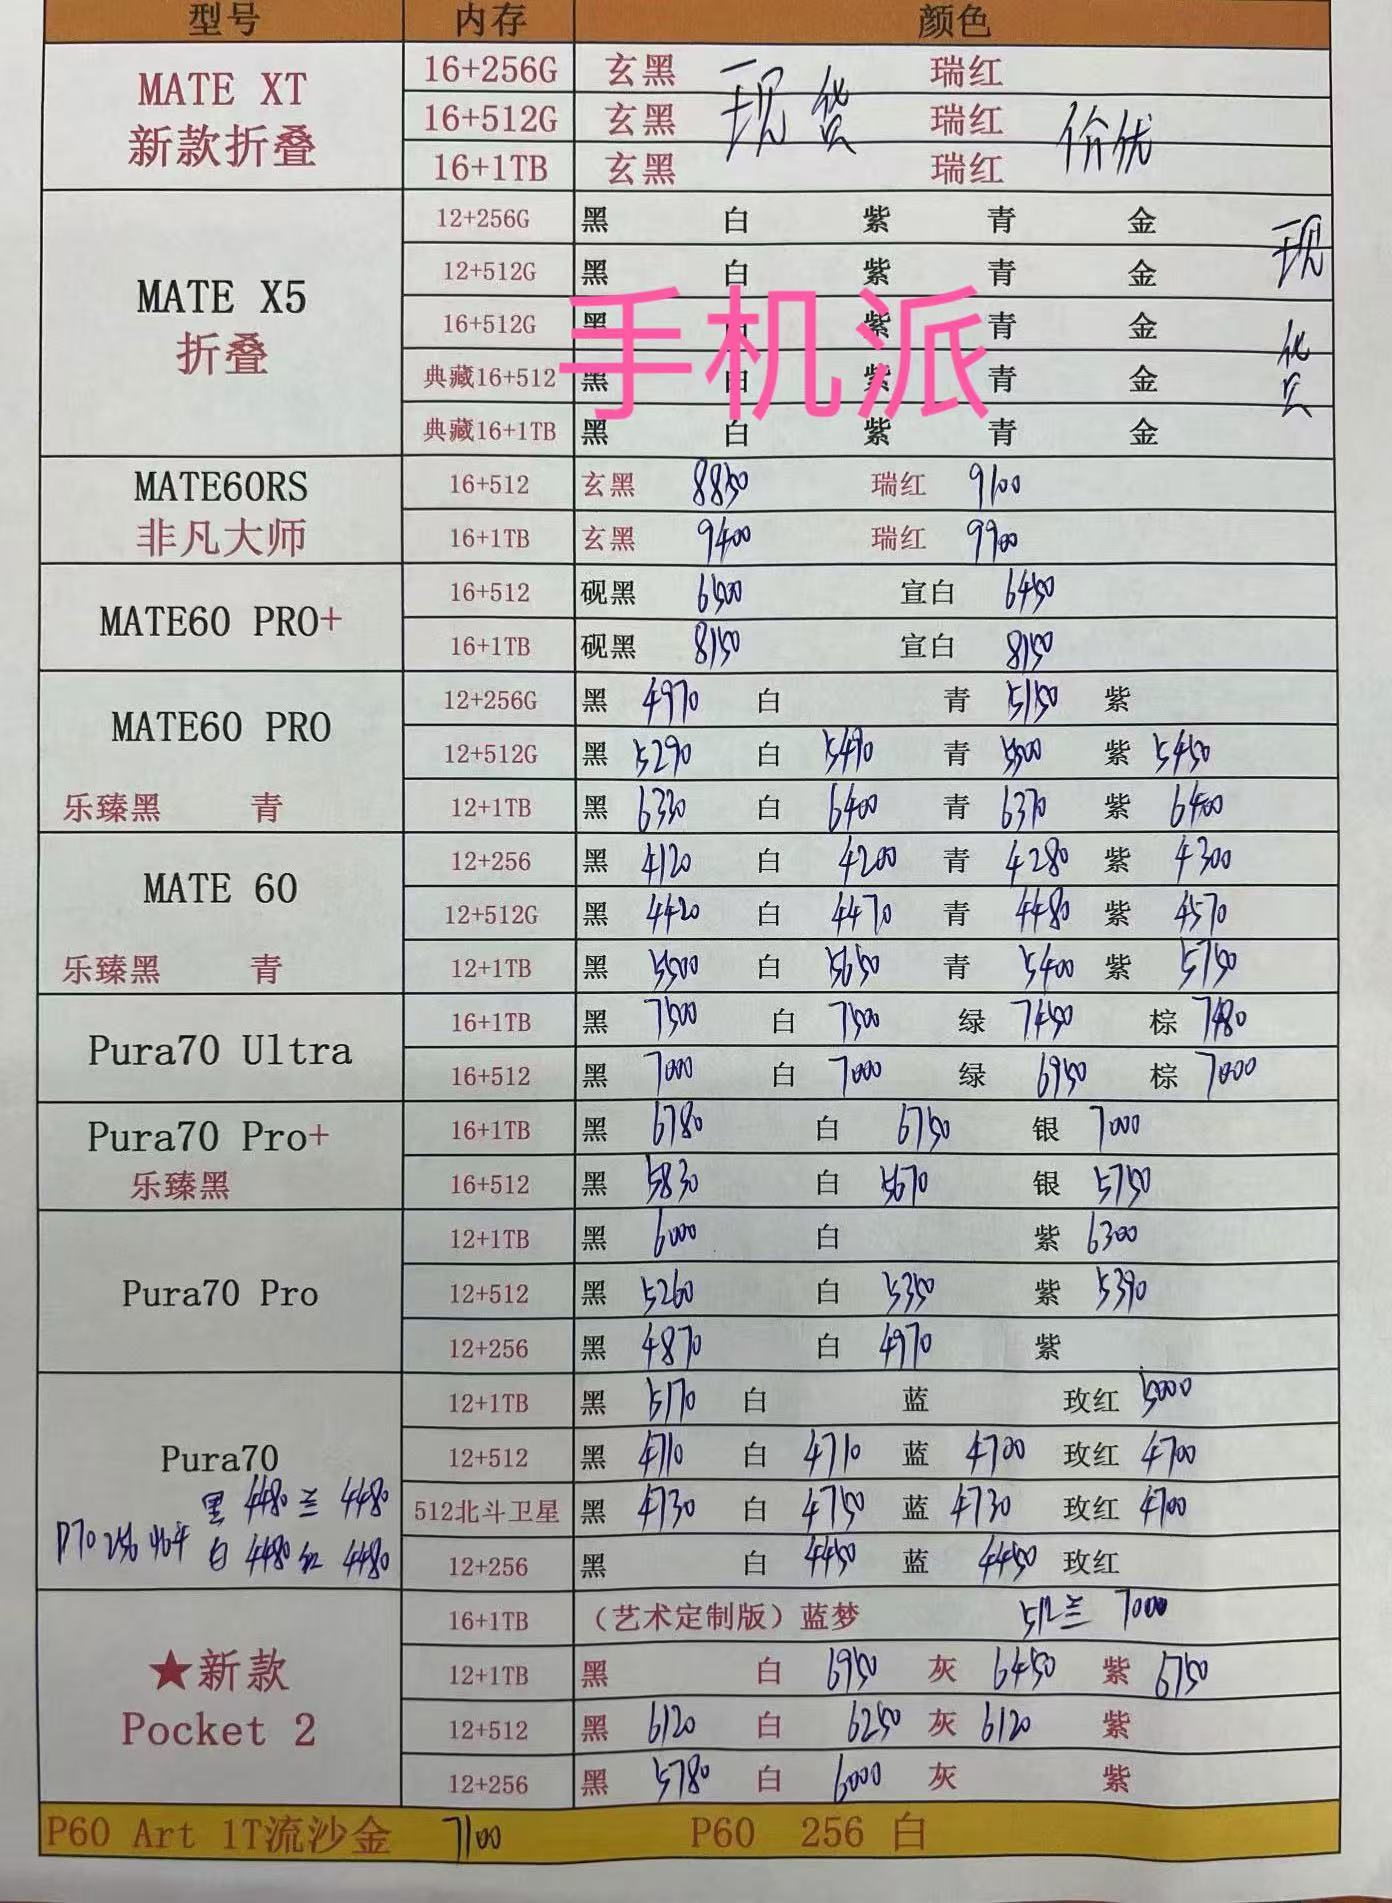 型号 内存 颜色
MATE XT 新款折叠 16+256G 玄黑 瑞红
16+512G 玄黑 现货 瑞红 价优
16+1TB 玄黑 瑞红
MATE X5 折叠 12+256G 黑 白 紫 青 金 现货
12+512G 黑 白 紫 青 金
16+512G 黑 白 紫 青 金
手机派
典藏16+512 黑 白 紫 青 金
典藏16+1TB 黑 白 紫 青 金
MATE60RS 非凡大师 16+512 玄黑 8850 瑞红 9100
16+1TB 玄黑 9400 瑞红 9900
MATE60 PRO+ 16+512 砚黑 6500 宣白 6450
16+1TB 砚黑 8150 宣白 8150
MATE60 PRO 12+256G 黑 4970 白 青 5150 紫
12+512G 黑 5290 白 5490 青 5500 紫 5450
乐臻黑 青 12+1TB 黑 6330 白 6400 青 6370 紫 6400
MATE 60 12+256 黑 4120 白 4200 青 4280 紫 4300
12+512G 黑 4420 白 4470 青 4480 紫 4570
乐臻黑 青 12+1TB 黑 5500 白 5650 青 5400 紫 5750
Pura70 Ultra 16+1TB 黑 7500 白 7500 绿 7450 棕 7480
16+512 黑 7000 白 7000 绿 6950 棕 7000
Pura70 Pro+ 16+1TB 黑 6780 白 6750 银 7000
乐臻黑 16+512 黑 5830 白 5670 银 5750
Pura70 Pro 12+1TB 黑 6000 白 紫 6300
12+512 黑 5260 白 5350 紫 5390
12+256 黑 4870 白 4970 紫
Pura70 12+1TB 黑 5170 白 蓝 玫红 5000
12+512 黑 4710 白 4710 蓝 4700 玫红 4700
黑 4480 兰 4480 512北斗卫星 黑 4730 白 4750 蓝 4730 玫红 4700
P70 256 北斗 白 4480 红 4480 12+256 黑 白 4450 蓝 4450 玫红
★新款 Pocket 2 16+1TB （艺术定制版）蓝梦 512兰 7000
12+1TB 黑 白 6950 灰 6450 紫 6750
12+512 黑 6120 白 6250 灰 6120 紫
12+256 黑 5780 白 6000 灰 紫
P60 Art 1T流沙金 7100 P60 256 白